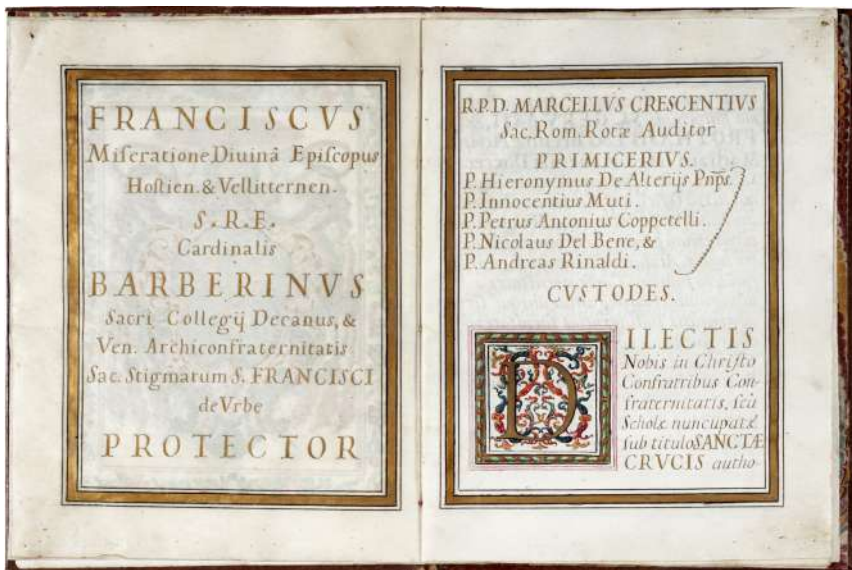 FRANCISCVS
Miſeratione Diuinâ Epiſcopus
Hoſtien. & Vellitternen.
S. R. E.
Cardinalis
BARBERINVS
Sacri Collegij Decanus, &
Ven. Archiconfraternitatis
Sac. Stigmatum S. FRANCISCI
de Vrbe
PROTECTOR
R.P.D. MARCELLVS CRESCENTIVS
Sac. Rom. Rotæ Auditor
PRIMICERIVS.
P. Hieronymus De Alterijs Pnp̃s.
P. Innocentius Muti.
P. Petrus Antonius Coppetelli.
P. Nicolaus Del Bene, &
P. Andreas Rinaldi.
CVSTODES.
DILECTIS
Nobis in Chriſto
Confratribus Con-
fraternitatis, ſeù
Scholæ nuncupatæ
ſub titulo SANCTÆ
CRVCIS autho-